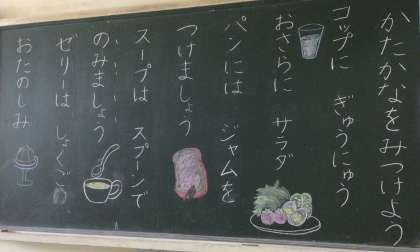 かたかなをみつけよう
コップに ぎゅうにゅう
おさらに サラダ
パンには ジャムを
つけましょう
スープは スプーンで
のみましょう
ゼリーは しょくご
おたのしみ